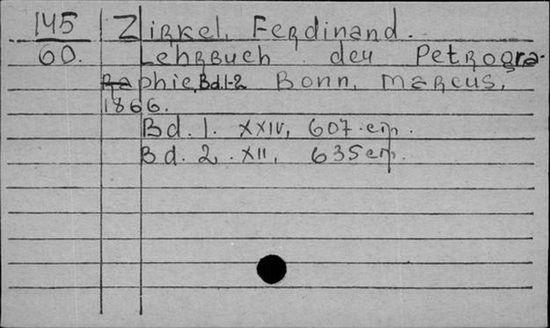 145 Zirkel, Ferdinand.
60. Lehrbuch der Petrogra-
phie, Bd. 1-2 Bonn, Marcus,
1866.
Bd. 1. XXIV, 607 стр.
Bd. 2. XII, 635 стр.